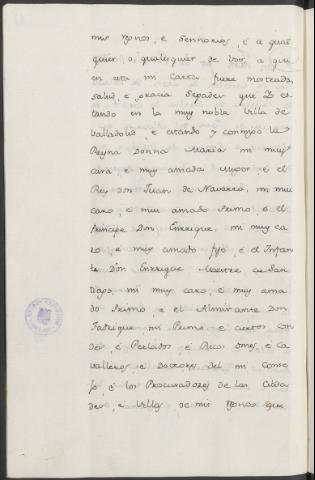 mis Rgnos, é Senhorios, é a qual
quier o qualesquier de vos, a qui
en esta mi Carta fuere mostrada,
salud, é gracia Sepades que Yo es
tando en la muy noble villa de
Valladolid, é estando y conmigo la
Reyna Donna Maria mi muy
cara, é muy amada Muger é el
Rey Don Juan de Navarra, mi mui
caro, é mui amado Primo é el
Principe Don Enrrique, mi muy ca
ro, é muy amado fijo, é el Infan
te Don Enrrique Maestre de San
tiago mi muy caro, é muy ama
do Primo, é el Almirante Don
Fadrique mi Primo é ciertos con
des, é Perlados é Ricos omes, é Ca
valleros, é Doctores del mi Conse
jo é los Procuradores de las Cibda
des, é Villas de mis Rgnos que